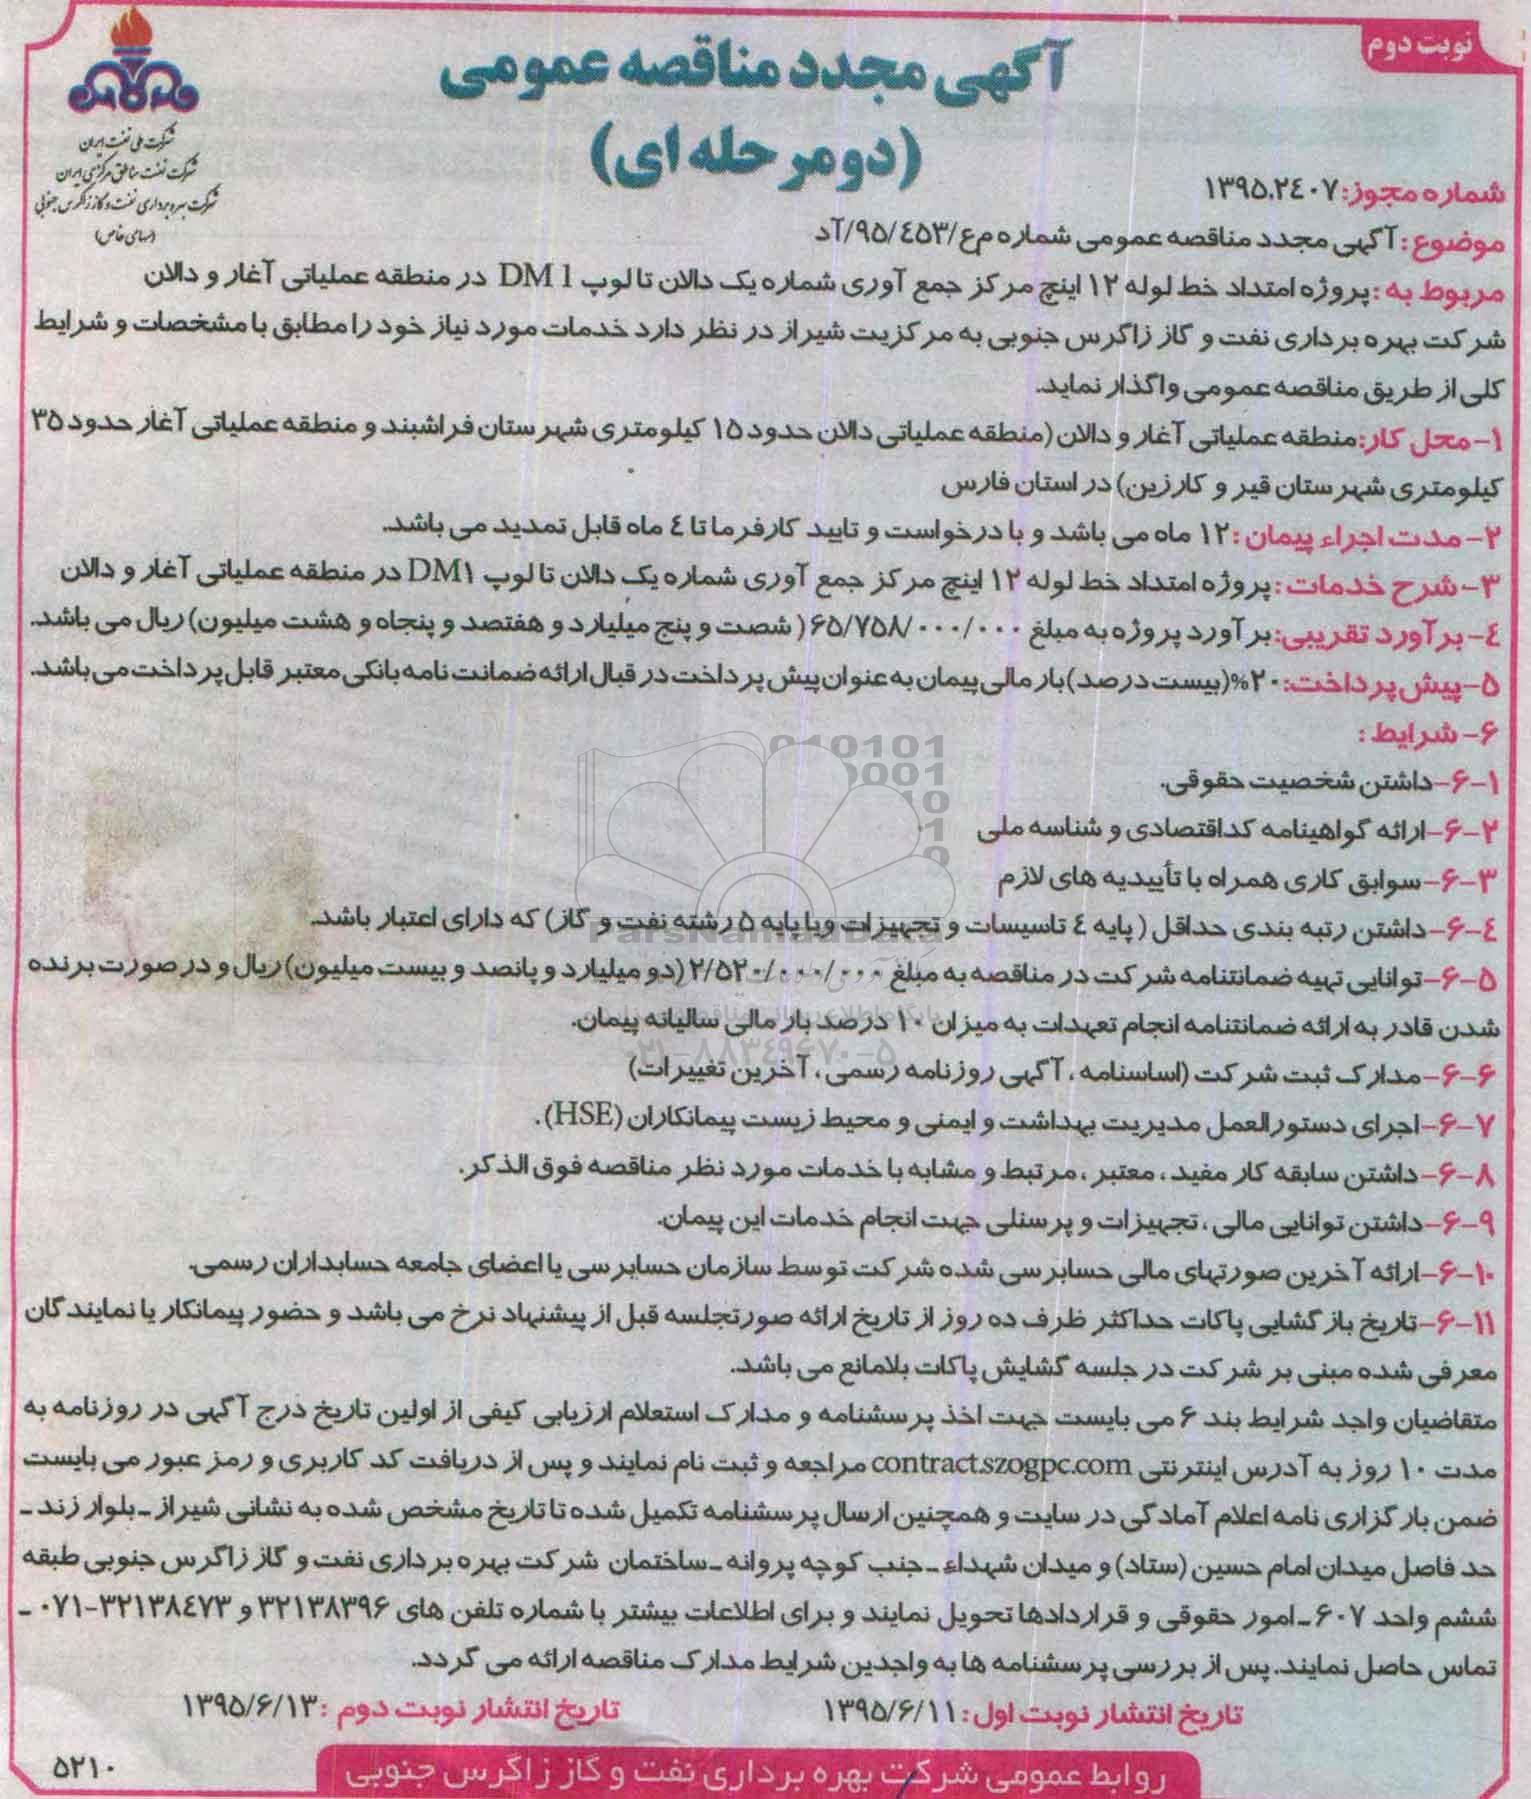 نوبت دوم
آگهی مجدد مناقصه عمومی
(دو مرحله ای)
شرکت ملی نفت ایران
شرکت نفت مناطق مرکزی ایران
شرکت بهره برداری نفت و گاز زاگرس جنوبی
(سهامی خاص)
شماره مجوز: ۱۳۹۵.۲۴۰۷
موضوع: آگهی مجدد مناقصه عمومی شماره م ع/۹۵/۴۵۳/آد
مربوط به: پروژه امتداد خط لوله ۱۲ اینچ مرکز جمع آوری شماره یک دالان تا لوپ DM 1 در منطقه عملیاتی آغار و دالان
شرکت بهره برداری نفت و گاز زاگرس جنوبی به مرکزیت شیراز در نظر دارد خدمات مورد نیاز خود را مطابق با مشخصات و شرایط
کلی از طریق مناقصه عمومی واگذار نماید.
۱- محل کار: منطقه عملیاتی آغار و دالان (منطقه عملیاتی دالان حدود ۱۵ کیلومتری شهرستان فراشبند و منطقه عملیاتی آغار حدود ۳۵
کیلومتری شهرستان قیر و کارزین) در استان فارس
۲- مدت اجراء پیمان: ۱۲ ماه می باشد و با درخواست و تایید کارفرما تا ۴ ماه قابل تمدید می باشد.
۳- شرح خدمات: پروژه امتداد خط لوله ۱۲ اینچ مرکز جمع آوری شماره یک دالان تا لوپ DM۱ در منطقه عملیاتی آغار و دالان
۴- برآورد تقریبی: برآورد پروژه به مبلغ ۶۵/۷۵۸/۰۰۰/۰۰۰ (شصت و پنج میلیارد و هفتصد و پنجاه و هشت میلیون) ریال می باشد.
۵- پیش پرداخت: ۲۰%(بیست درصد) بار مالی پیمان به عنوان پیش پرداخت در قبال ارائه ضمانت نامه بانکی معتبر قابل پرداخت می باشد.
۶- شرایط:
۶-۱- داشتن شخصیت حقوقی.
۶-۲- ارائه گواهینامه کد اقتصادی و شناسه ملی
۶-۳- سوابق کاری همراه با تأییدیه های لازم
۶-۴- داشتن رتبه بندی حداقل ( پایه ۴ تاسیسات و تجهیزات ویا پایه ۵ رشته نفت و گاز) که دارای اعتبار باشد.
۶-۵- توانایی تهیه ضمانتنامه شرکت در مناقصه به مبلغ ۲/۵۲۰/۰۰۰/۰۰۰ (دو میلیارد و پانصد و بیست میلیون) ریال و در صورت برنده
شدن قادر به ارائه ضمانتنامه انجام تعهدات به میزان ۱۰ درصد بار مالی سالیانه پیمان.
۶-۶- مدارک ثبت شرکت (اساسنامه، آگهی روزنامه رسمی، آخرین تغییرات)
۶-۷- اجرای دستورالعمل مدیریت بهداشت و ایمنی و محیط زیست پیمانکاران (HSE).
۶-۸- داشتن سابقه کار مفید، معتبر، مرتبط و مشابه با خدمات مورد نظر مناقصه فوق الذکر.
۶-۹- داشتن توانایی مالی، تجهیزات و پرسنلی جهت انجام خدمات این پیمان.
۶-۱۰- ارائه آخرین صورتهای مالی حسابرسی شده شرکت توسط سازمان حسابرسی یا اعضای جامعه حسابداران رسمی.
۶-۱۱- تاریخ بازگشایی پاکات حداکثر ظرف ده روز از تاریخ ارائه صورتجلسه قبل از پیشنهاد نرخ می باشد و حضور پیمانکار یا نمایندگان
معرفی شده مبنی بر شرکت در جلسه گشایش پاکات بلامانع می باشد.
متقاضیان واجد شرایط بند ۶ می بایست جهت اخذ پرسشنامه و مدارک استعلام ارزیابی کیفی از اولین تاریخ درج آگهی در روزنامه به
مدت ۱۰ روز به آدرس اینترنتی contract.szogpc.com مراجعه و ثبت نام نمایند و پس از دریافت کد کاربری و رمز عبور می بایست
ضمن بارگزاری نامه اعلام آمادگی در سایت و همچنین ارسال پرسشنامه تکمیل شده تا تاریخ مشخص شده به نشانی شیراز ـ بلوار زند ـ
حد فاصل میدان امام حسین (ستاد) و میدان شهداء ـ جنب کوچه پروانه ـ ساختمان شرکت بهره برداری نفت و گاز زاگرس جنوبی طبقه
ششم واحد ۶۰۷ ـ امور حقوقی و قراردادها تحویل نمایند و برای اطلاعات بیشتر با شماره تلفن های ۳۲۱۳۸۳۹۶ و ۳۲۱۳۸۴۷۳-۰۷۱ ـ
تماس حاصل نمایند. پس از بررسی پرسشنامه ها به واجدین شرایط مدارک مناقصه ارائه می گردد.
تاریخ انتشار نوبت اول: ۱۳۹۵/۶/۱۱ تاریخ انتشار نوبت دوم: ۱۳۹۵/۶/۱۳
روابط عمومی شرکت بهره برداری نفت و گاز زاگرس جنوبی
۵۲۱۰
ParsNamadData
۰۲۱-۸۸۳۴۹۶۷۰-۵